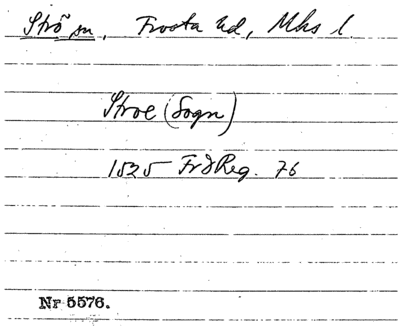 Strö sn, Frosta hd, Mhs l.
Stroe (Sogn)
1525 FrdReg. 76
Nr 5576.